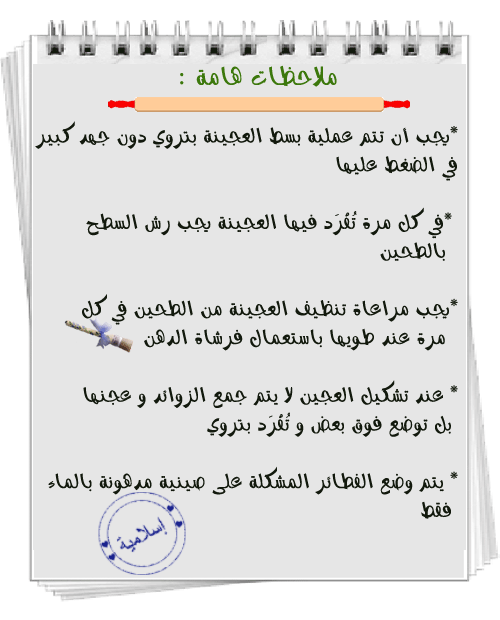 ملاحظات هامة :
*يجب ان تتم عملية بسط العجينة بتروي دون جهد كبير
في الضغط عليها
*في كل مرة تُفْرَد فيها العجينة يجب رش السطح
بالطحين
*يجب مراعاة تنظيف العجينة من الطحين في كل
مرة عند طويها باستعمال فرشاة الدهن
* عند تشكيل العجين لا يتم جمع الزوائد و عجنها
بل توضع فوق بعض و تُفْرَد بتروي
* يتم وضع الفطائر المشكلة على صينية مدهونة بالماء
فقط
إسلامية